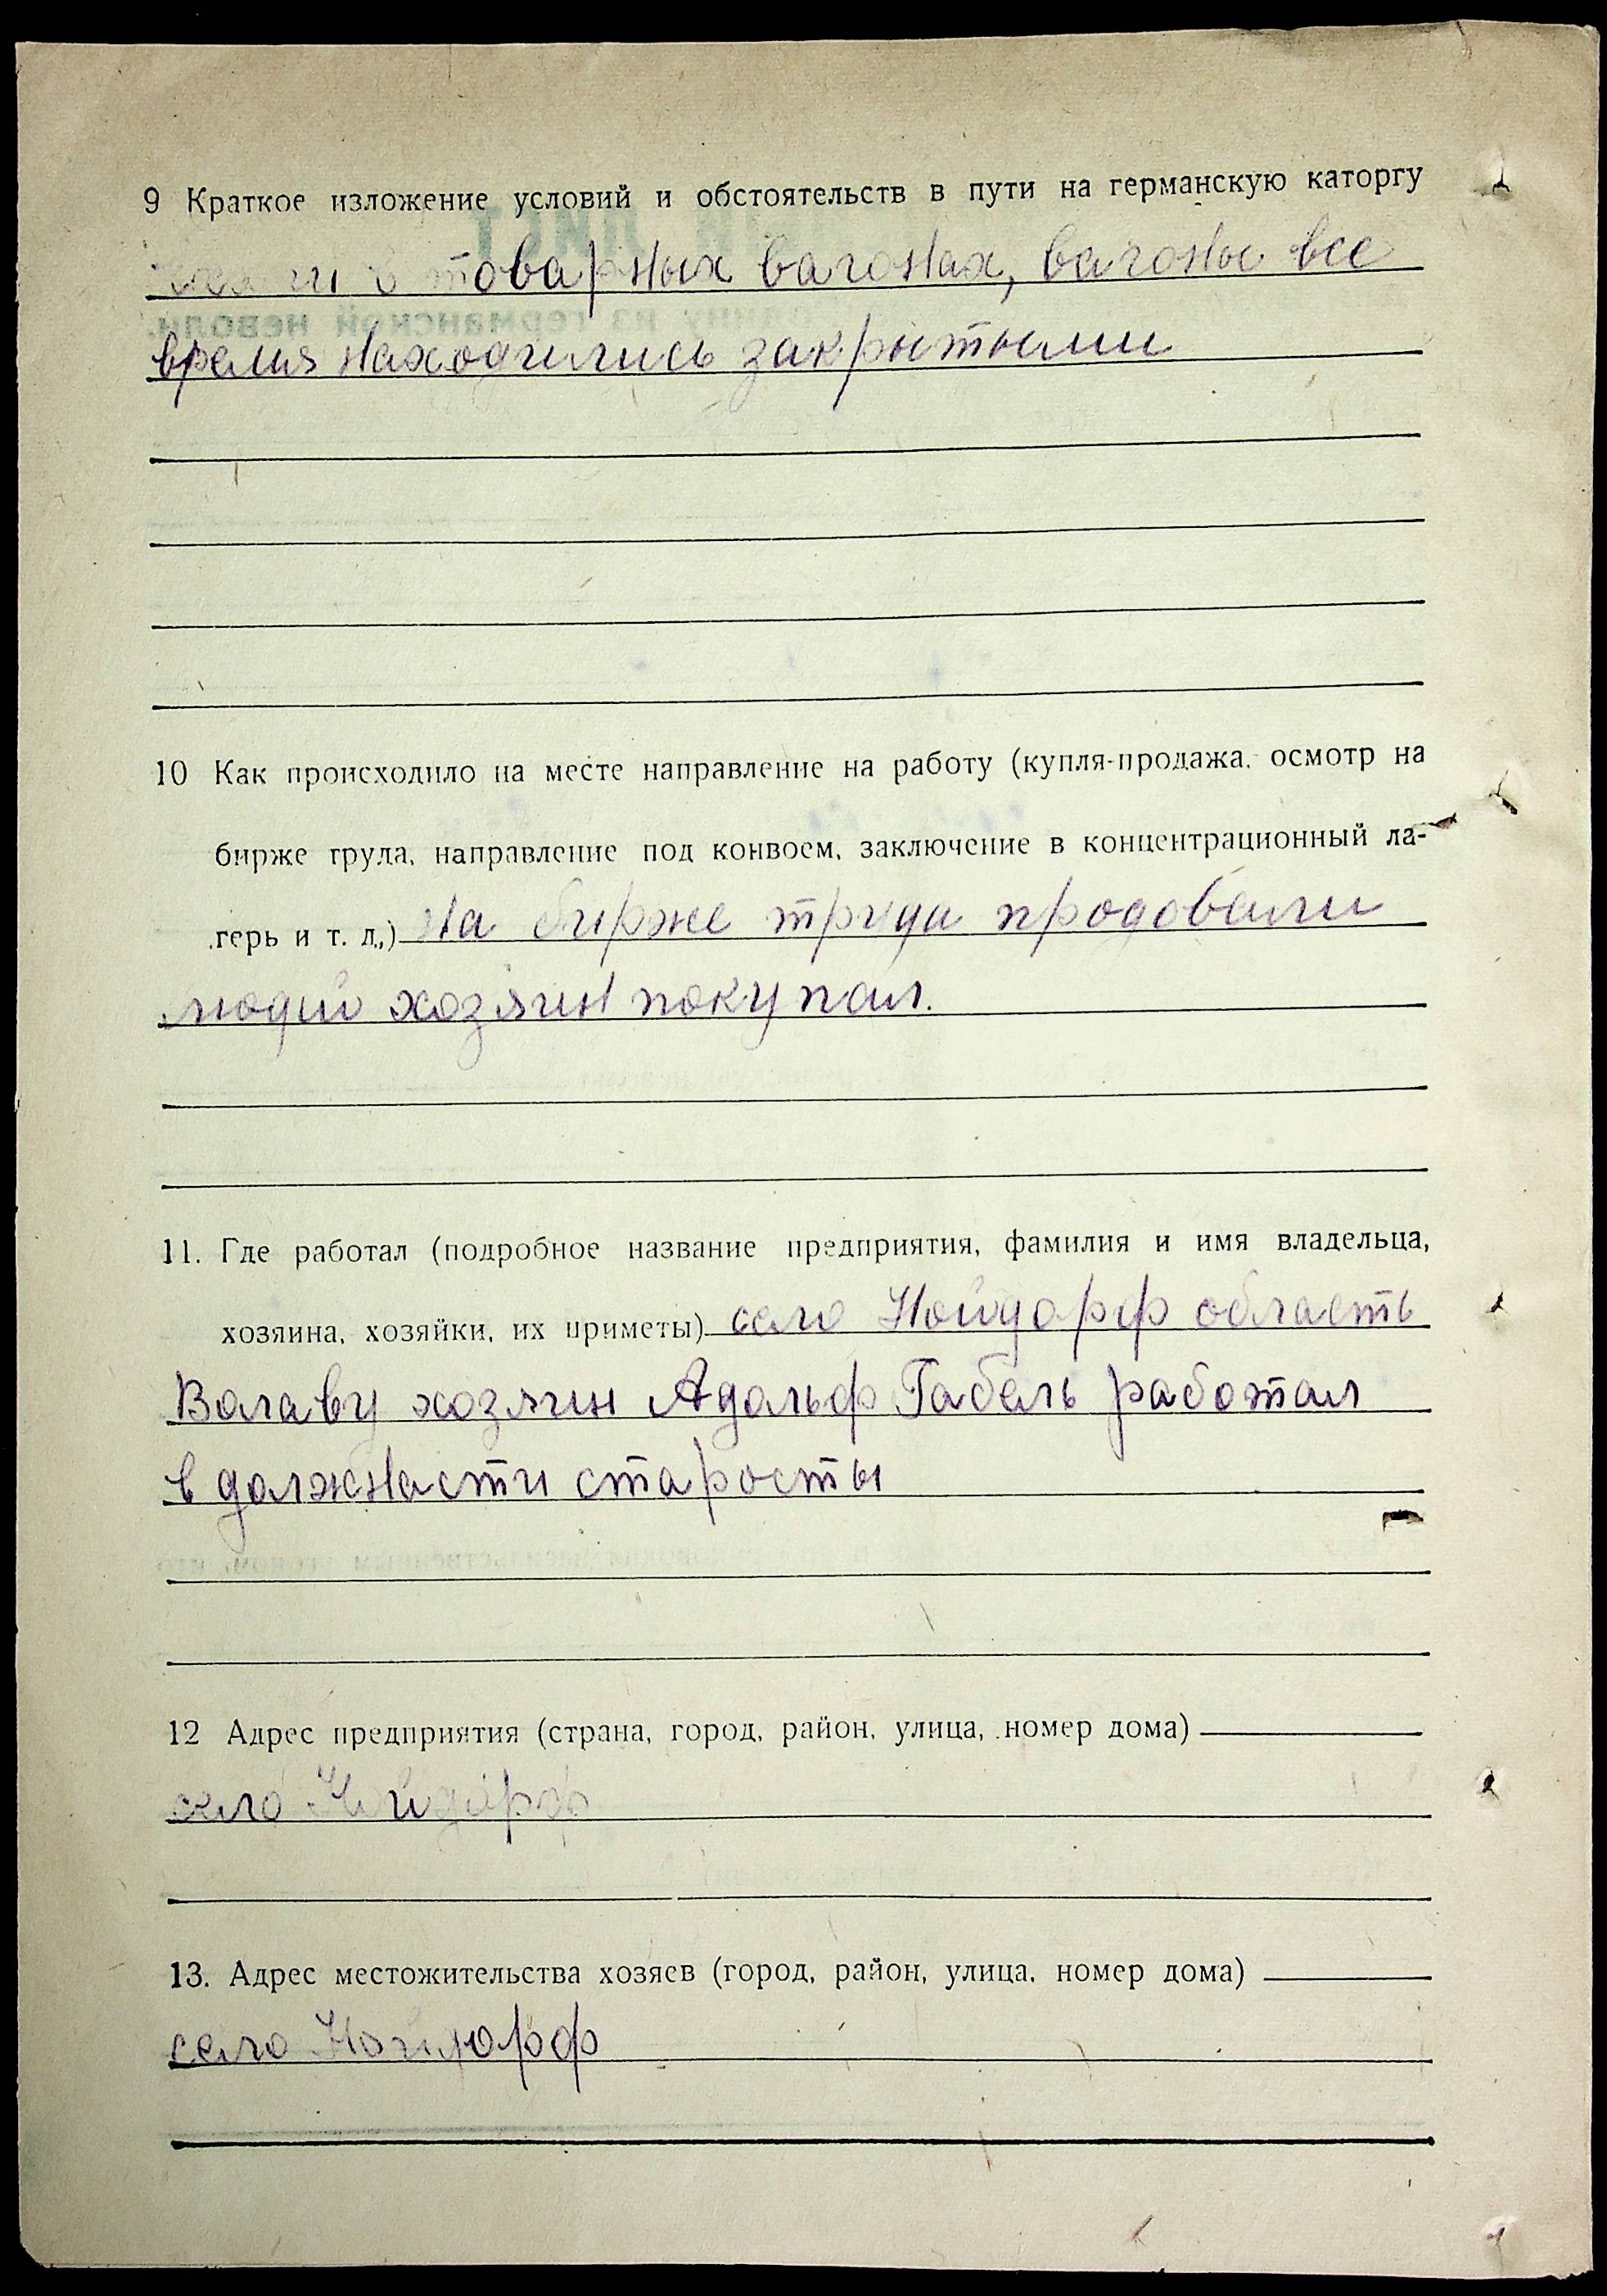 9 Краткое изложение условий и обстоятельств в пути на германскую каторгу
в товарных вагонах, вагоны все
время находились закрытыми
10 Как происходило на месте направление на работу (купля-продажа, осмотр на
бирже труда, направление под конвоем, заключение в концентрационный ла-
герь и т. д.) На бирже труда продовали
людей хозяин покупал.
11. Где работал (подробное название предприятия, фамилия и имя владельца,
хозяина, хозяйки, их приметы) село Нойдорф область
Валаву хозяин Адольф Габель работал
в должнасти старосты
12 Адрес предприятия (страна, город, район, улица, номер дома)
село Нойдорф
13. Адрес местожительства хозяев (город, район, улица, номер дома)
село Нойдорф